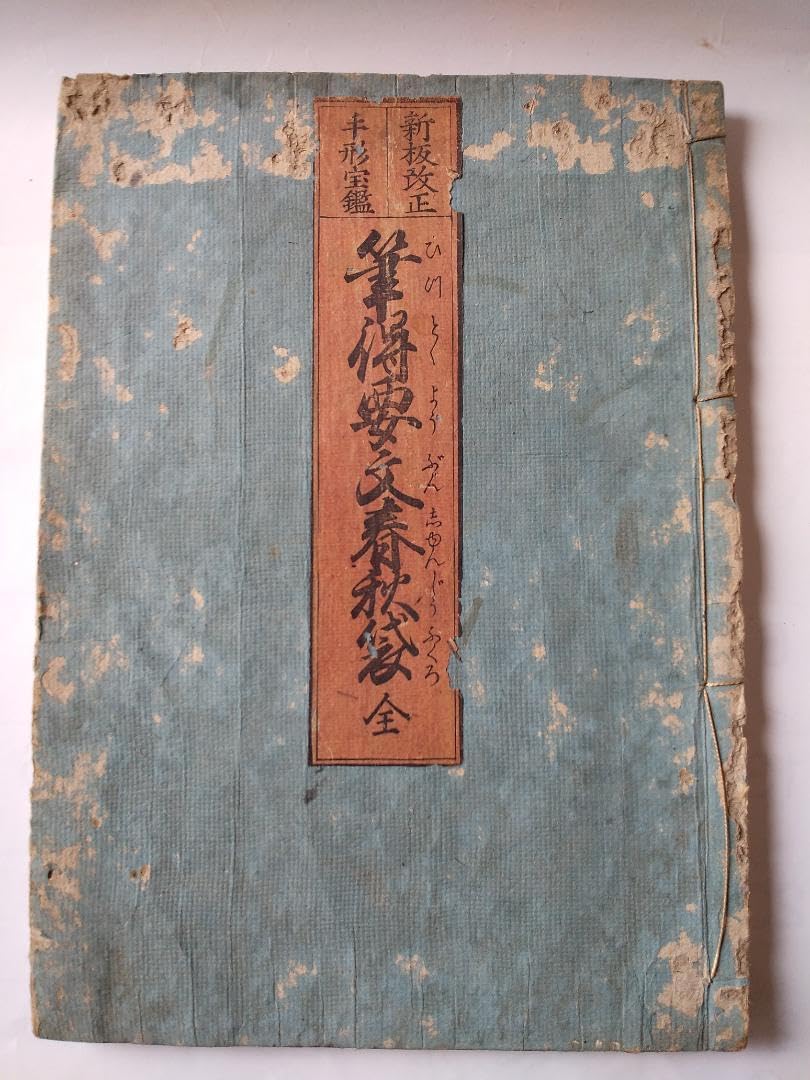 新板改正
手形宝鑑
筆得要文春秋袋 全
ひつ とく よう ぶん しゆんじう ふくろ